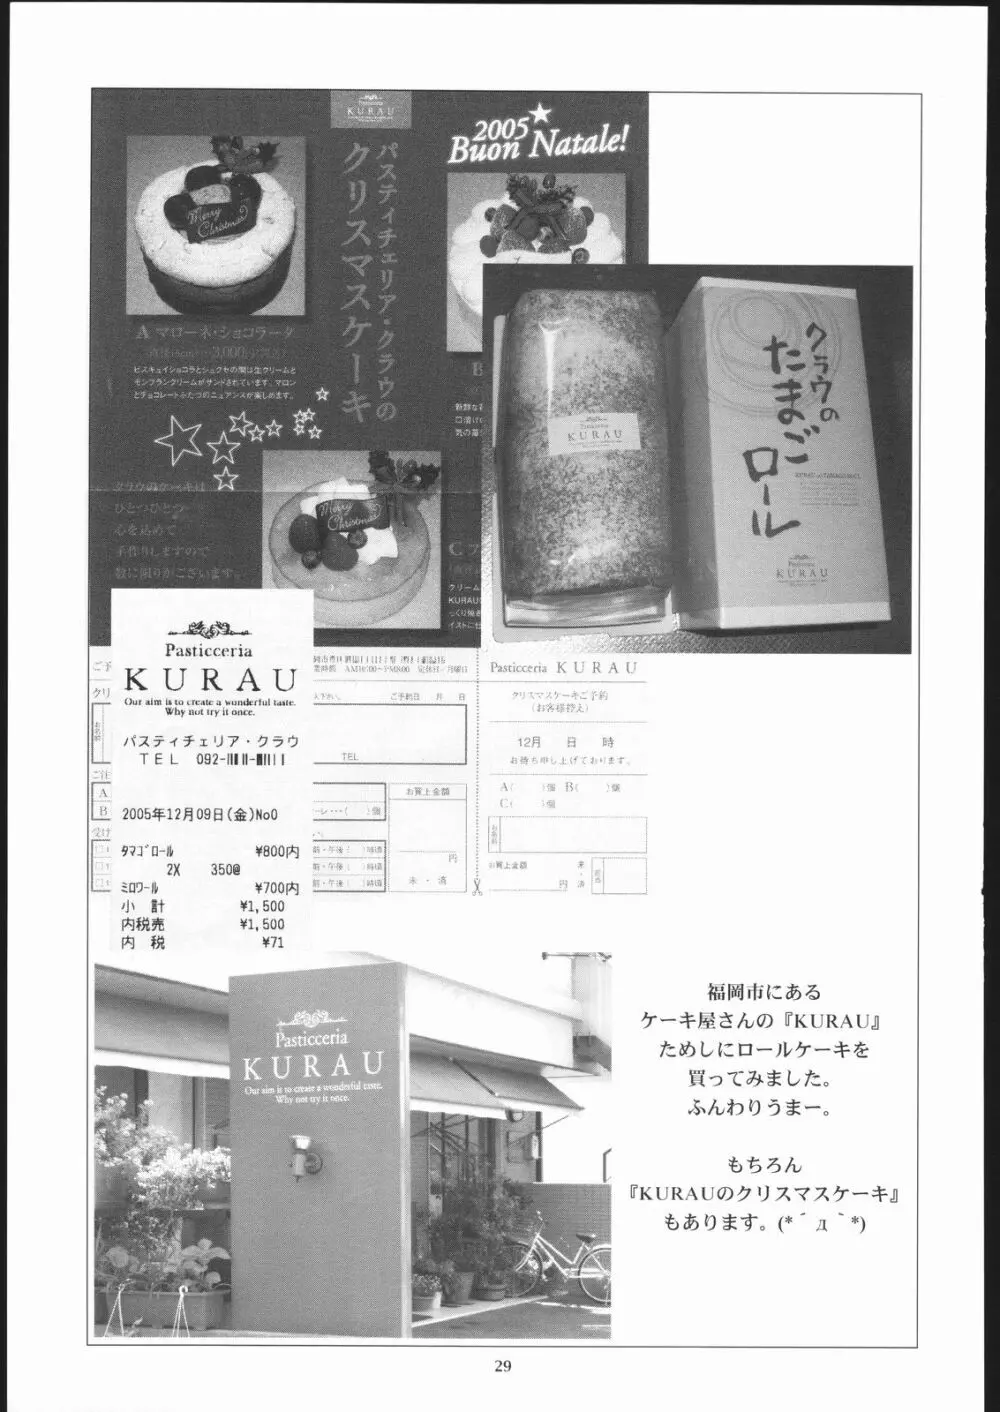 Pasticceria
KURAU
2005
Buon Natale!
パスティチェリア・クラウの
クリスマスケーキ
Merry
Christmas
A マローネ・ショコラータ
3,000
ビスキュイショコラとシュクセの間は生クリームと
モンブランクリームがサンドされています。マロン
とチョコレートふたつのニュアンスが楽しめます。
B
新鮮な
口溶け
気の
クラウのケーキは
ひとつひとつ
心を込めて
手作りしますので
数に限りがございます。
Merry
Christmas
C
クリーム
KURAU
っくり焼き
イストに仕
Pasticceria
KURAU
クラウの
たまご
ロール
Pasticceria
KURAU
Pasticceria
KURAU
Our aim is to create a wonderful taste.
Why not try it once.
パスティチェリア・クラウ
TEL 092-
2005年12月09日(金)No0
ﾀﾏｺﾞﾛｰﾙ ¥800内
2X 350@
ﾐﾛﾜｰﾙ ¥700内
小 計 ¥1,500
内税売 ¥1,500
内 税 ¥71
営業時間 AM10:00～PM8:00 定休日／月曜日
ご予約日 月 日
お名前
TEL
A
B
( )個
お買上金額
円
未・済
前・午後( )時頃
前・午後( )時頃
前・午後( )時頃
Pasticceria KURAU
クリスマスケーキご予約
(お客様控え)
12月 日 時
お待ち申し上げております。
A( )個 B( )個
C( )個
お名前
お買上金額
円
未・済
福岡市にある
ケーキ屋さんの『KURAU』
ためしにロールケーキを
買ってみました。
ふんわりうまー。
もちろん
『KURAUのクリスマスケーキ』
もあります。(*´д｀*)
Pasticceria
KURAU
Our aim is to create a wonderful taste.
Why not try it once.
29